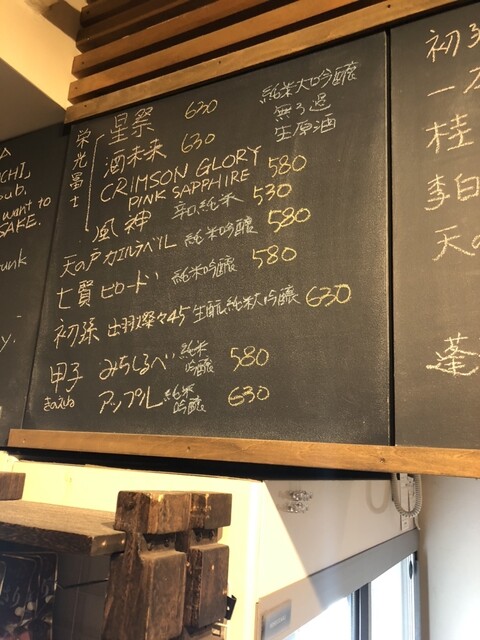 CHI,
pub.
want to
SAKE.
栄光冨士
星祭 630
酒未来 630
CRIMSON GLORY
PINK SAPPHIRE 580
純米大吟醸
無ろ過
生原酒
風神 辛口純米 530
天の戸 カエルラベル 純米吟醸 580
七賢 ビロード 純米吟醸 580
初孫 出羽燦々45 生酛純米大吟醸 630
甲子 みちしるべ 純米吟醸 580
きのえね アップル 純米吟醸 630
初孫
一
桂
李白
天の
蓬